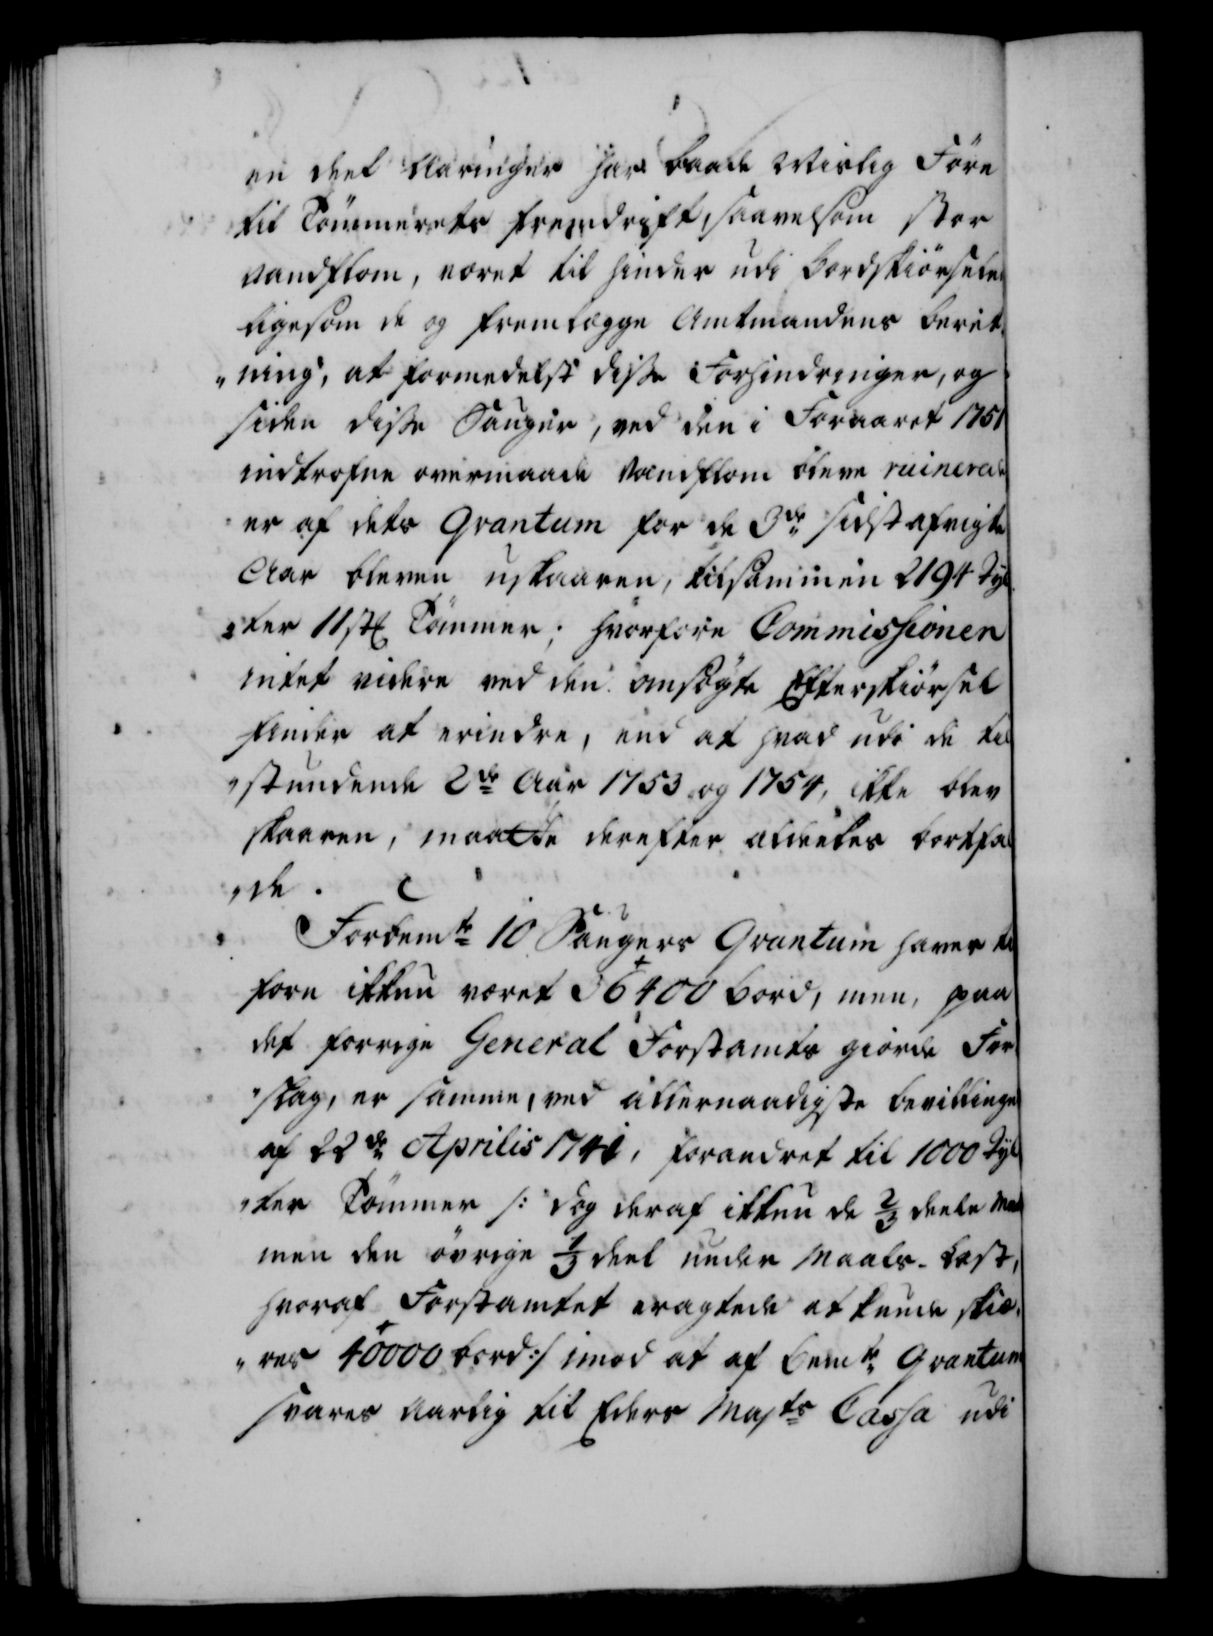 en deel Aaringer har baade Mislig Före
til Tömmerets fremdrift, saavelsom stor
vandflom, været til hinder udi Bordskiörselen
ligesom de og fremlægge Amtmandens beret-
„ning, at formedelst disse Forhindringer, og
siden disse Sauger, ved den i Foraaret 1751
indtrofne overmaade Vandflom bleve ruinerede
er af dets Qvantum for de 3de sidst afvigte
Aar bleven uskaaren, tilsammen 2194 Tyl
„ter 11 stk Tömmer; hvorfore Commissionen
intet videre ved den ansögte Efterskiörsel
finder at erindre, end at hvad udi de til
„stundende 2de Aar 1753 og 1754, ikke blev
skaaren, maatte derefter aldeeles bortfal
„de.
Forbemte 10 Saugers Qvantum haver til
forn ikkun været 36400 Bord, men, paa
det forrige General Forstamts giorde For
„slag, er samme, ved allernaadigste bevillinge
af 22de Aprilis 1741, forandret til 1000 Tyl
„ter Tömmer /: dog deraf ikkun de 2/3 deele
men den övrige 1/3 deel under Maals-Last,
hvoraf Forstamtet eragtede at kunde skiæ-
„res 40000 bord :/ imod at af bemte Qvantum
svares Aarlig til Eders Mayts Cassa udi